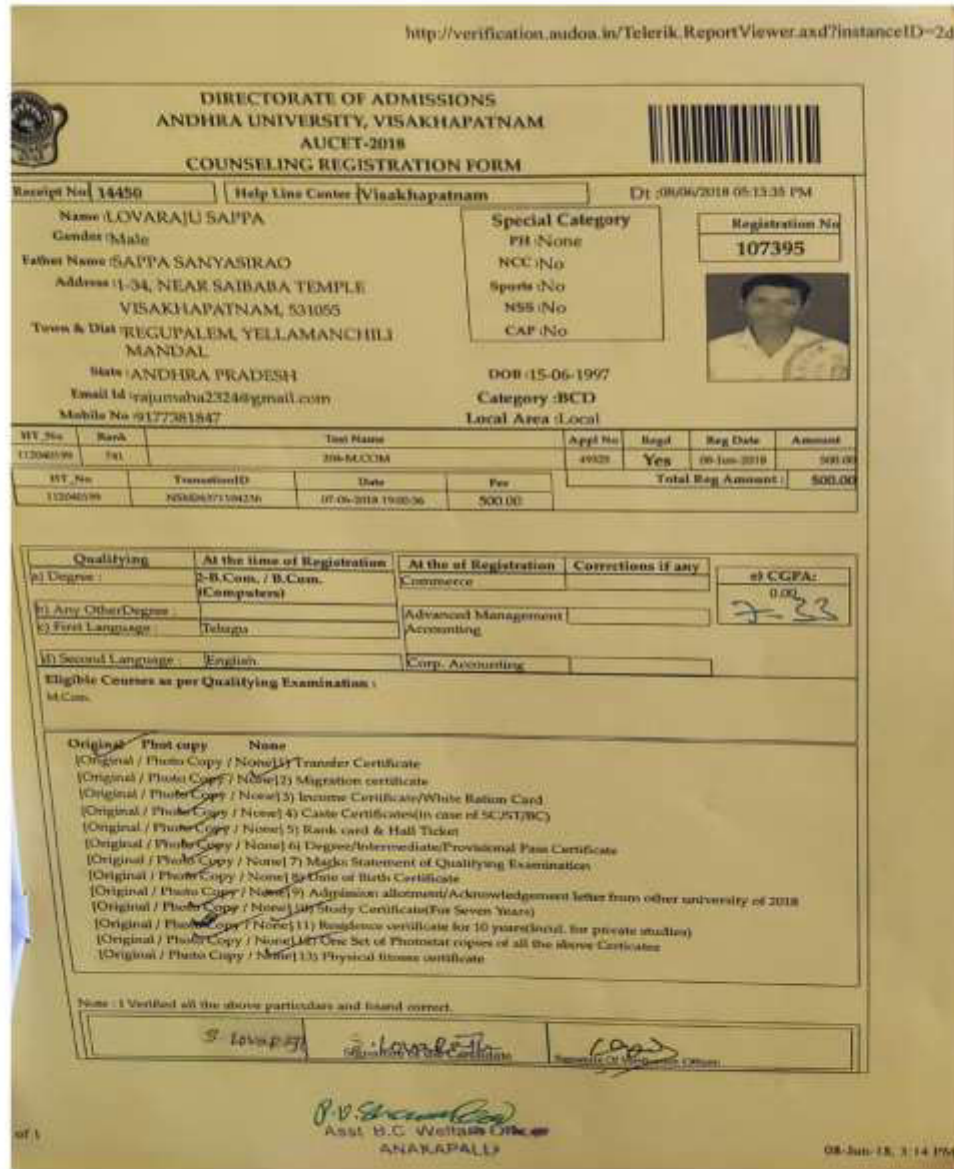 http://verification.audoa.in/Telerik.ReportViewer.axd?instanceID=2d
DIRECTORATE OF ADMISSIONS
ANDHRA UNIVERSITY, VISAKHAPATNAM
AUCET-2018
COUNSELING REGISTRATION FORM
Receipt No 14450 Help Line Center Visakhapatnam Dt :08/06/2018 05:13:35 PM
Name :LOVARAJU SAPPA
Gender :Male
Father Name :SAPPA SANYASIRAO
Address :1-34, NEAR SAIBABA TEMPLE
VISAKHAPATNAM, 531055
Town & Dist :REGUPALEM, YELLAMANCHILI
MANDAL
State :ANDHRA PRADESH
Email Id :rajumaha2324@gmail.com
Mobile No :9177381847
Special Category
PH :None
NCC :No
Sports :No
NSS :No
CAP :No
DOB :15-06-1997
Category :BCD
Local Area :Local
Registration No
107395
HT_No Rank Test Name Appl No Regd Reg Date Amount
112040599 206-M.COM 49325 Yes 08-Jun-2018 500.00
Total Reg Amount : 500.00
HT_No TransationID Date Fee
112040599 07-06-2018 500.00
Qualifying At the time of Registration At the of Registration Corrections if any
a) Degree : 2-B.Com. / B.Com. (Computers) Commerce
b) Any OtherDegree : Advanced Management Accounting
c) First Language : Telugu
d) Second Language : English Corp. Accounting
e) CGPA:
0.00
7-33
Eligible Courses as per Qualifying Examination :
M.Com.
Original Phot copy None
[Original / Photo Copy / None]1) Transfer Certificate
[Original / Photo Copy / None]2) Migration certificate
[Original / Photo Copy / None]3) Income Certificate/White Ration Card
[Original / Photo Copy / None] 4) Caste Certificates(in case of SC/ST/BC)
[Original / Photo Copy / None] 5) Rank card & Hall Ticket
[Original / Photo Copy / None] 6) Degree/Intermediate/Provisional Pass Certificate
[Original / Photo Copy / None] 7) Marks Statement of Qualifying Examination
[Original / Photo Copy / None] 8) Date of Birth Certificate
[Original / Photo Copy / None]9) Admission allotment/Acknowledgement letter from other university of 2018
[Original / Photo Copy / None] 10) Study Certificate(For Seven Years)
[Original / Photo Copy / None]11) Residence certificate for 10 years(incul. for private studies)
[Original / Photo Copy / None]12) One Set of Photostat copies of all the above Certicates
[Original / Photo Copy / None]13) Physical fitness certificate
Note : I Verified all the above particulars and found correct.
Signature Of the Candidate
Signature Of Verification Officer
Asst B.C Welfare Officer
ANAKAPALLI
of 1
08-Jun-18, 3:14 PM